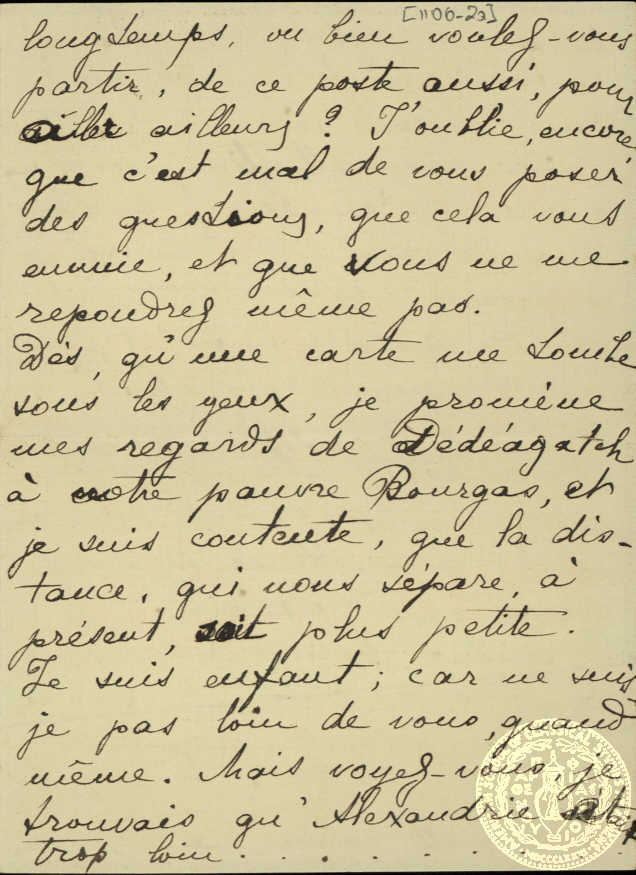 [1106-2a]
longtemps, ou bien voulez-vous
partir, de ce poste aussi, pour
aller ailleurs? J'oublie, encore
que c'est mal de vous poser
des questions, que cela vous
ennuie, et que vous ne me
repondrez même pas.
Dès, qu'une carte me tombe
sous les yeux, je promène
mes regards de Dédéagatch
à notre pauvre Bourgas, et
je suis contente, que la dis-
tance, qui nous sépare, à
présent, soit plus petite.
Je suis enfant; car ne suis
je pas loin de vous, quand
même. Mais voyez-vous, je
trouvais qu'Alexandrie était
trop loin . . . . . . . .